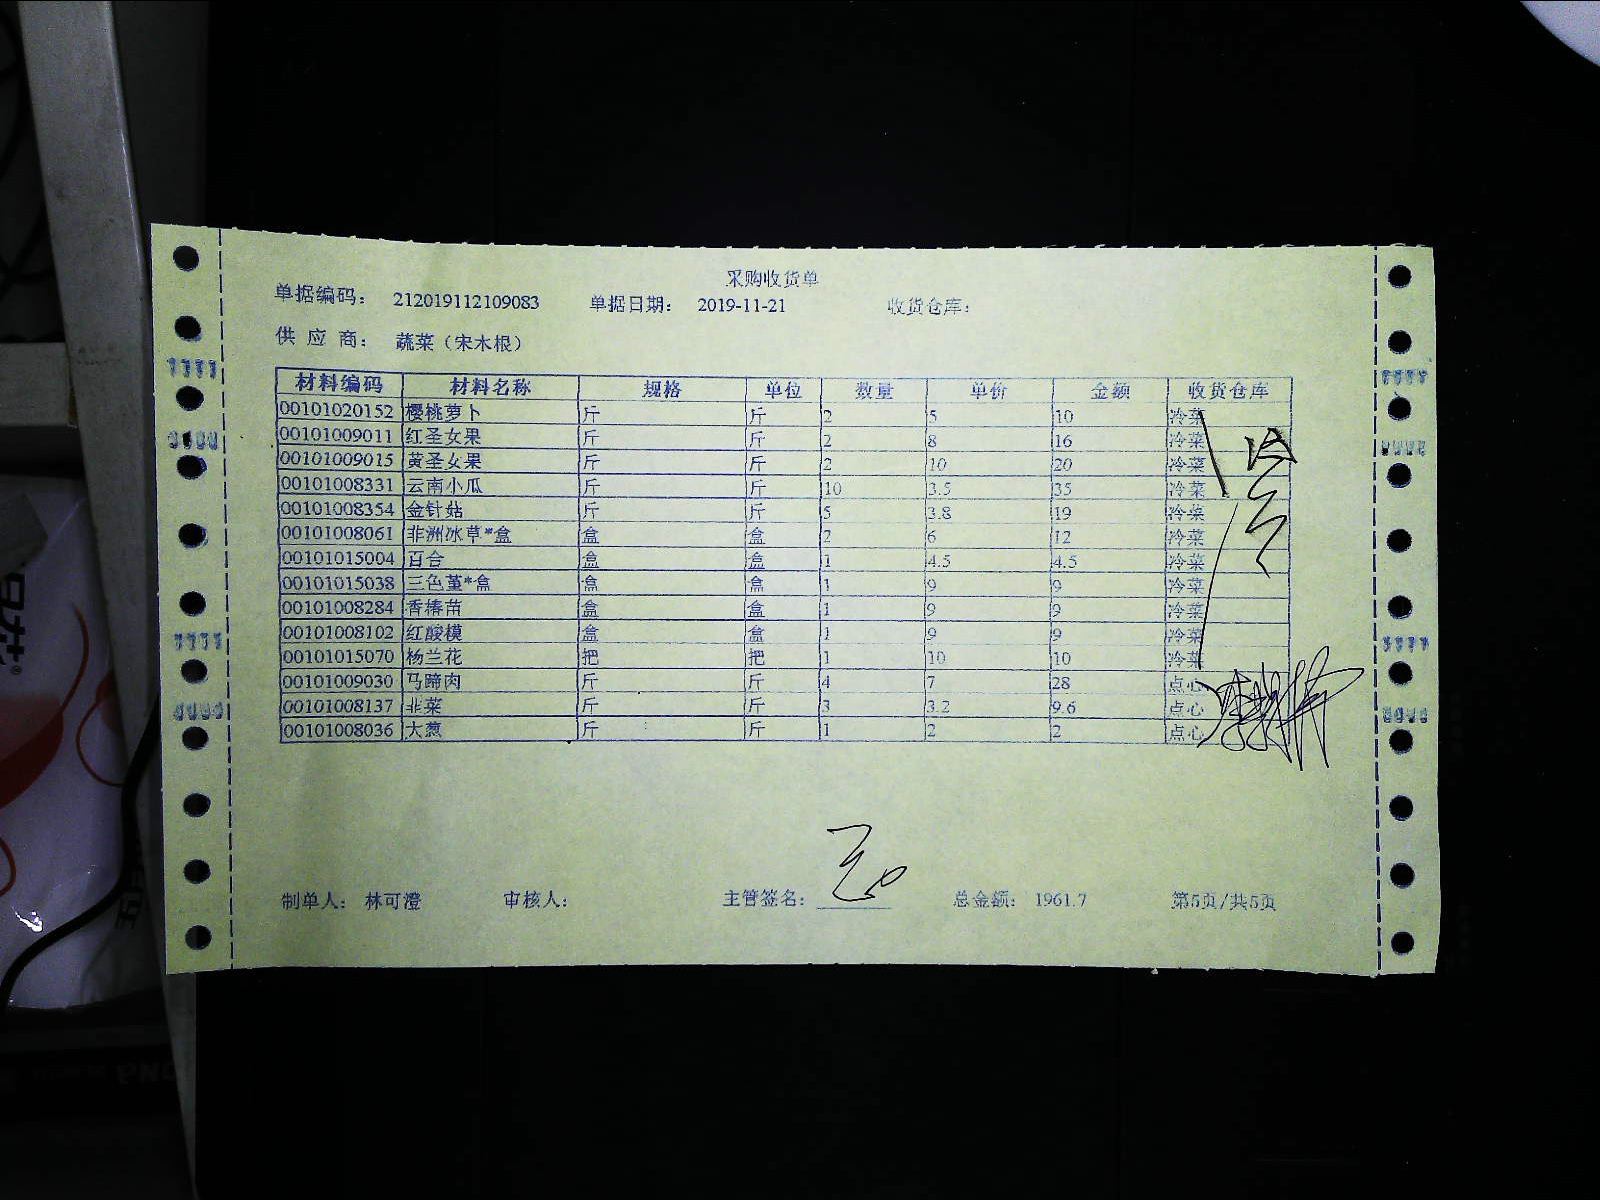 采购收货单
单据编码： 212019112109083 单据日期： 2019-11-21 收货仓库：
供 应 商： 蔬菜（宋木根）
材料编码 材料名称 规格 单位 数量 单价 金额 收货仓库
00101020152 樱桃萝卜 斤 斤 2 5 10 冷菜
00101009011 红圣女果 斤 斤 2 8 16 冷菜
00101009015 黄圣女果 斤 斤 2 10 20 冷菜
00101008331 云南小瓜 斤 斤 10 3.5 35 冷菜
00101008354 金针菇 斤 斤 5 3.8 19 冷菜
00101008061 非洲冰草*盒 盒 盒 2 6 12 冷菜
00101015004 百合 盒 盒 1 4.5 4.5 冷菜
00101015038 三色堇*盒 盒 盒 1 9 9 冷菜
00101008284 香椿苗 盒 盒 1 9 9 冷菜
00101008102 红酸模 盒 盒 1 9 9 冷菜
00101015070 杨兰花 把 把 1 10 10 冷菜
00101009030 马蹄肉 斤 斤 4 7 28 点心
00101008137 韭菜 斤 斤 3 3.2 9.6 点心
00101008036 大葱 斤 斤 1 2 2 点心
制单人： 林可澄 审核人： 主管签名： 总金额： 1961.7 第5页/共5页